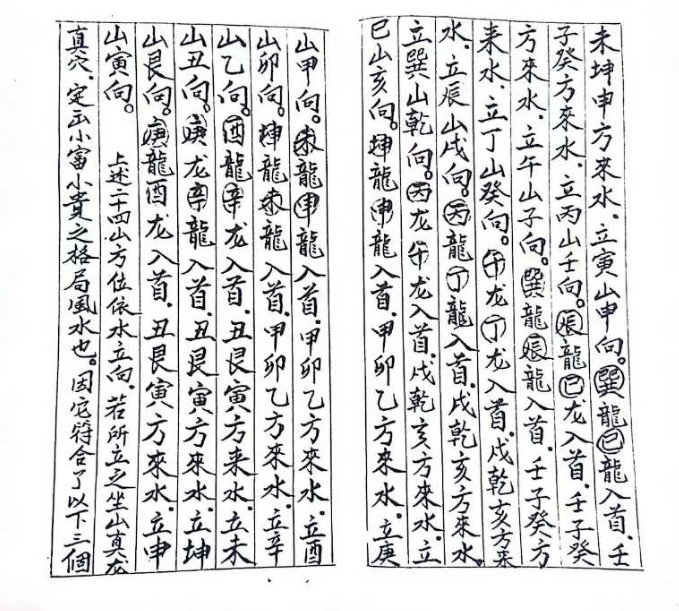 未坤申方來水．立寅山申向。巽龍巳龍入首．壬
子癸方來水．立丙山壬向。辰龍巳龙入首．壬子癸
方來水．立午山子向。巽龍辰龍入首．壬子癸方
来水．立丁山癸向。午龙丁龙入首．戌乾亥方来
水．立辰山戌向。丙龍丁龍入首．戌乾亥方來水。
立巽山乾向。丙龙午龙入首．戌乾亥方來水．立
巳山亥向。坤龍申龍入首．甲卯乙方來水．立庚
山甲向。未龍申龍入首．甲卯乙方來水．立酉
山卯向。坤龍未龍入首．甲卯乙方來水．立辛
山乙向。酉龍辛龙入首．丑艮寅方来水．立未
山丑向。庚龙辛龍入首．丑艮寅方來水．立坤
山艮向。庚龍酉龙入首．丑艮寅方來水．立申
山寅向。　上述二十四山方位依水立向．若所立之坐山真龙
真穴．定出小富小貴之格局風水也。因它符合了以下三個